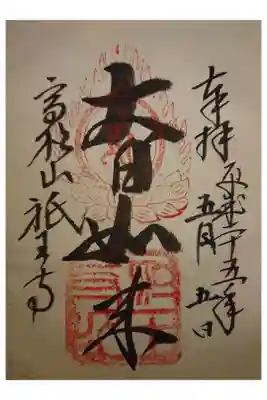 奉拝
平成二十五年
五月五日
大日如来
高松山祇王寺